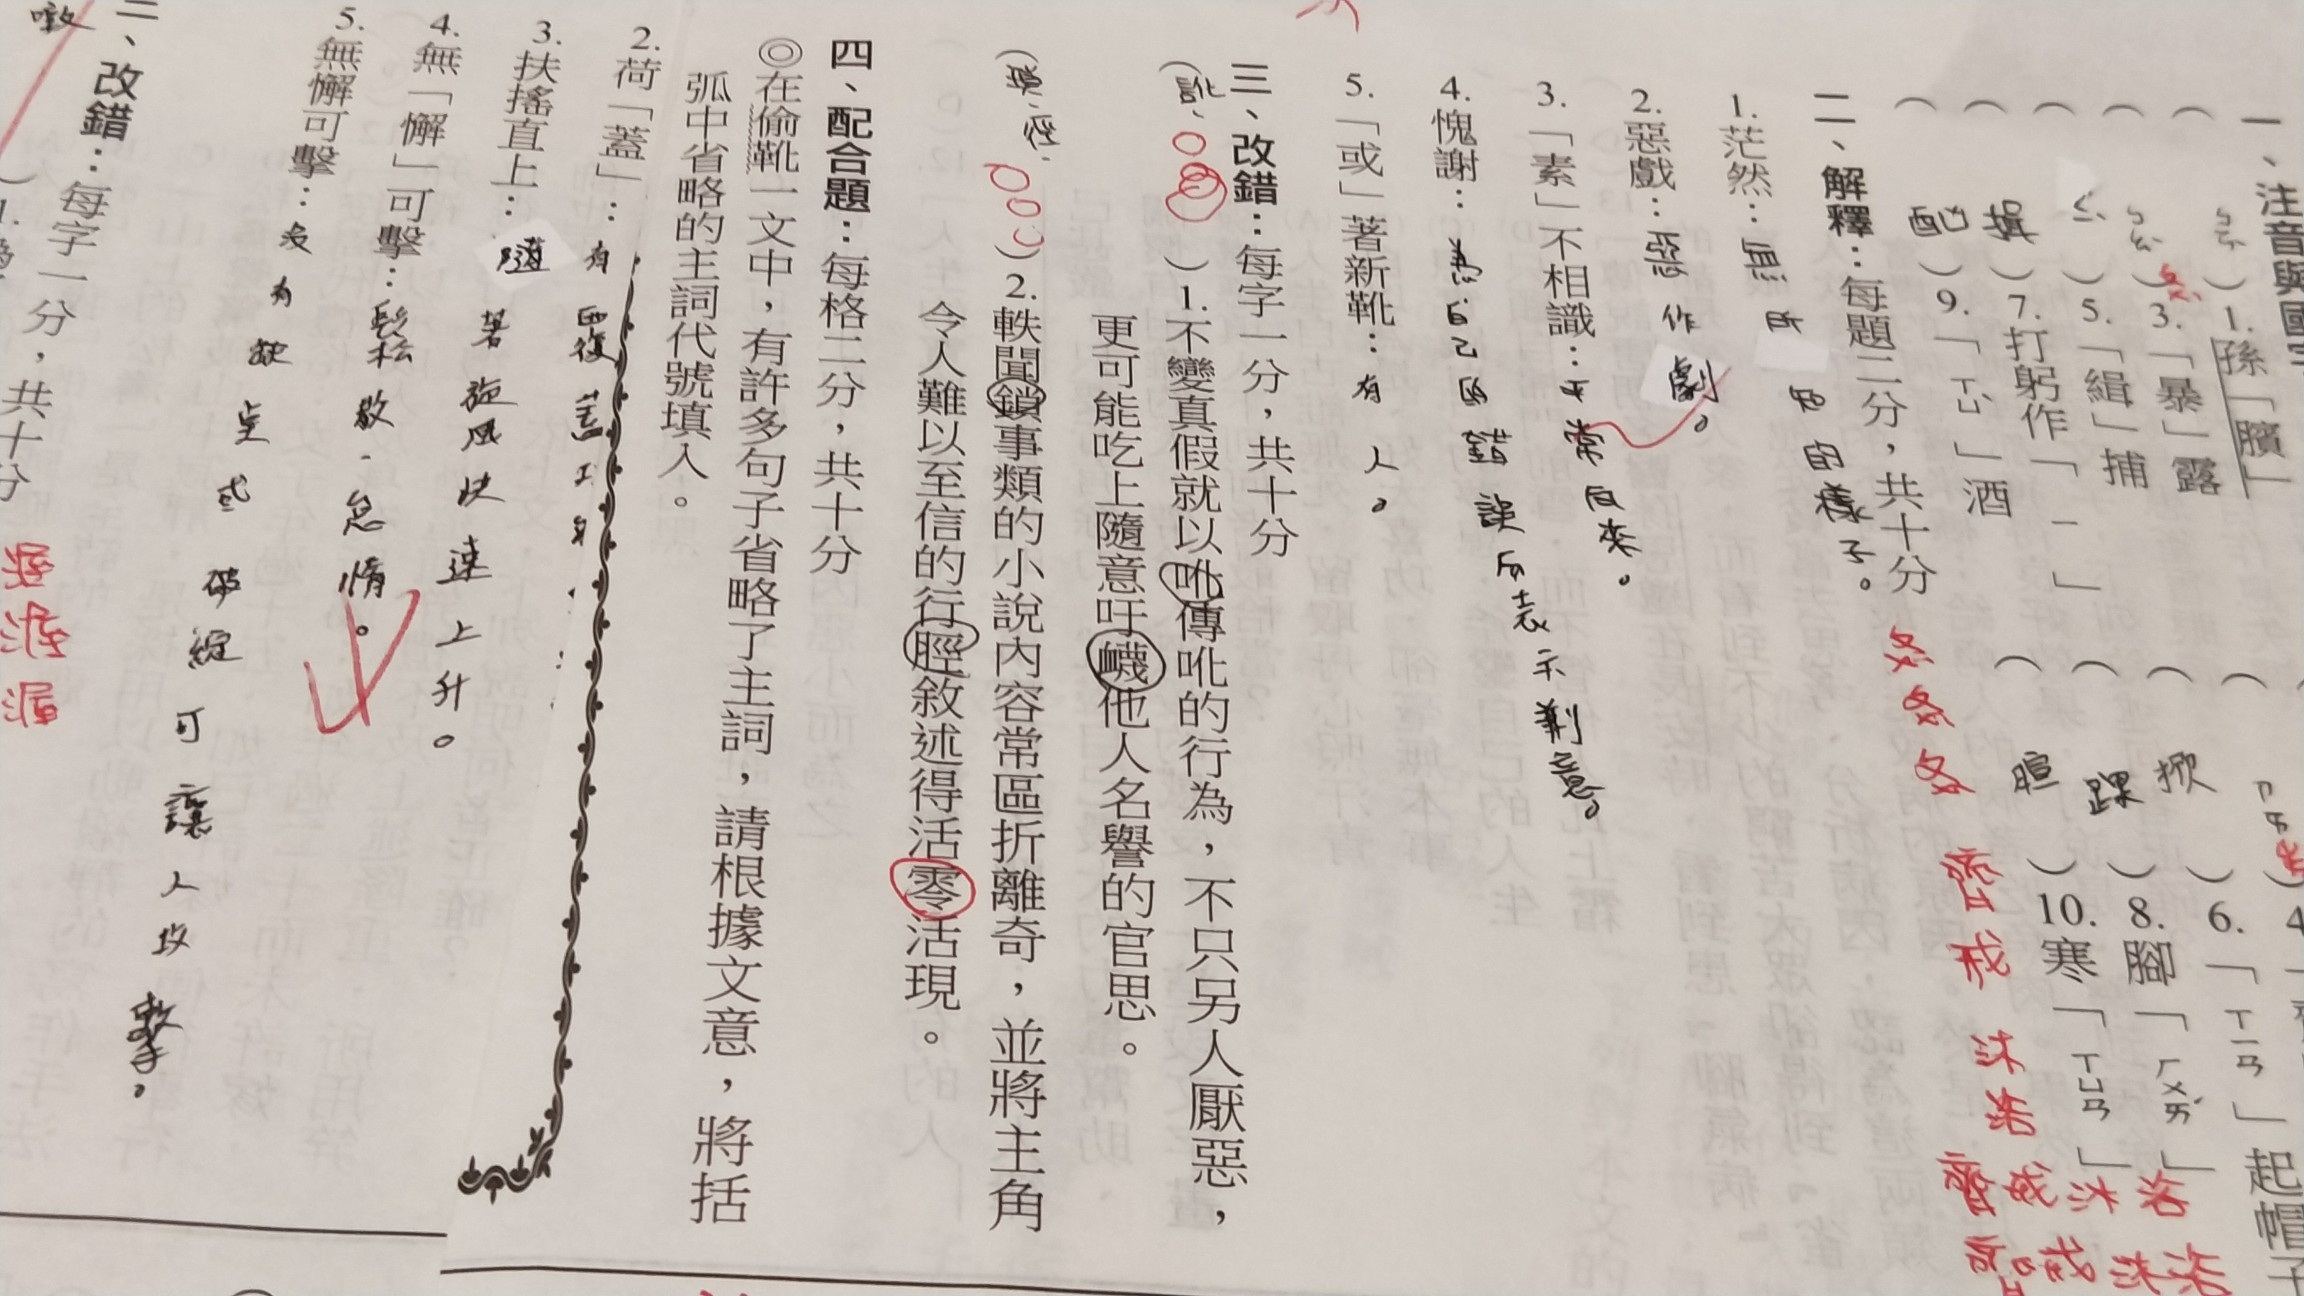 一、注音與國字
1.孫「臏」
3.「暴」露
5.「緝」捕
7.打躬作「ㄧ」
揖
9.「ㄒㄩˋ」酒
酗
6.「ㄒㄧㄢ」起帽子
掀
8.腳「ㄏㄨㄞˊ」
踝
10.寒「ㄒㄩㄢ」
暄
二、解釋：每題二分，共十分
1.茫然：無所知的樣子。
2.惡戲：惡作劇。
3.「素」不相識：平常反來。
4.愧謝：為自己的錯誤而表示
5.「或」著新靴：有人。
三、改錯：每字一分，共十分
（訛、）1.不變真假就以吪傳吪的行為，不只另人厭惡，
更可能吃上隨意吁衊他人名譽的官思。
（瑣、徑、）2.軼聞鎖事類的小說內容常區折離奇，並將主角
令人難以至信的行脛敘述得活零活現。
四、配合題：每格二分，共十分
◎在偷靴一文中，有許多句子省略了主詞，請根據文意，將括
弧中省略的主詞代號填入。
2.荷「蓋」：有覆蓋
3.扶搖直上：隨著旋風快速上升。
4.無「懈」可擊：鬆松散、怠惰。
5.無懈可擊：沒有缺點或破綻可讓人攻擊。
二、改錯：每字一分，共十分